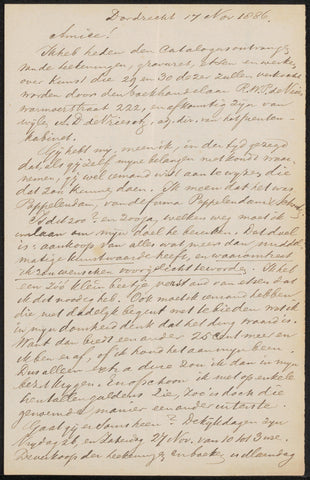 Dordrecht 17 Nov 1886.
Amice!
Ik heb heden den Catalogus ontvangen
van de teekeningen, gravures, etsen en werken
over kunst die 29 en 30 dezer zullen verkocht
worden door den boekhandelaar R.W.P. de Vries,
Warmoesstraat 222, en afkomstig zijn van
wijlen D. de Vries oz, dir. van het prenten-
kabinet.
Gij hebt mij, meen ik, in der tijd gezegd
dat, als gij zelf mijne belangen niet kondt waar-
nemen, gij wel iemand wist aan te wijzen, die
dat zou kunnen doen. Ik meen dat het was
Pappelendam, van de firma Pappelendam & Schouten
Is dat zoo? en zoo ja, welken weg moet ik
inslaan om mijn doel te bereiken. Dat doel
is: aankoop van alles wat meer dan middel-
matige kunstwaarde heeft, en waaromtrent
ik zou wenschen voorgelicht te worden. Ik heb
een zóó klein beetje verstand van etsen dat
ik dit noodig heb. Ook moet ik iemand hebben
die niet dadelijk begint met te bieden wat ik
in mijn domheid denk dat het ding waard is.
Want dan biedt een ander 25 cent meer en
ik ben er af, of ik houd het aan mijn been.
Dus alleen extra dure zou ik dan in mijn
bezit krijgen. En ofschoon ik niet op enkele
tientallen guldens zie, zoo is door die
gewone manier een ander in terste
Gaat gij er soms heen? De kijkdagen zijn
Vrijdag 26, en Zaterdag 27 Nov. van 10 tot 3 uur.
De verkoop der teekeningen, en boeken, is Maandag